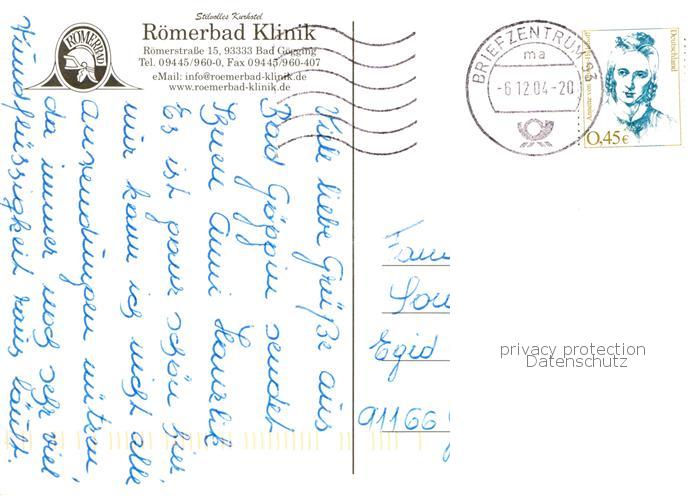 Stilvolles Kurhotel
Römerbad Klinik
Römerstraße 15, 93333 Bad Gögging
Tel. 09445/960-0, Fax 09445/960-407
eMail: info@roemerbad-klinik.de
www.roemerbad-klinik.de
RÖMERBAD
BRIEFZENTRUM 93
ma
-6.12.04-20
Deutschland
0,45€
Viele liebe Grüße aus
Bad Göggin sendet
Euch Anni
Es ist ganz schön hier,
nur kann ich nicht alle
Anwendungen nützen,
da immer noch sehr viel
Wundflüssigkeit raus läuft.
Fam
Egid
91166
privacy protection
Datenschutz